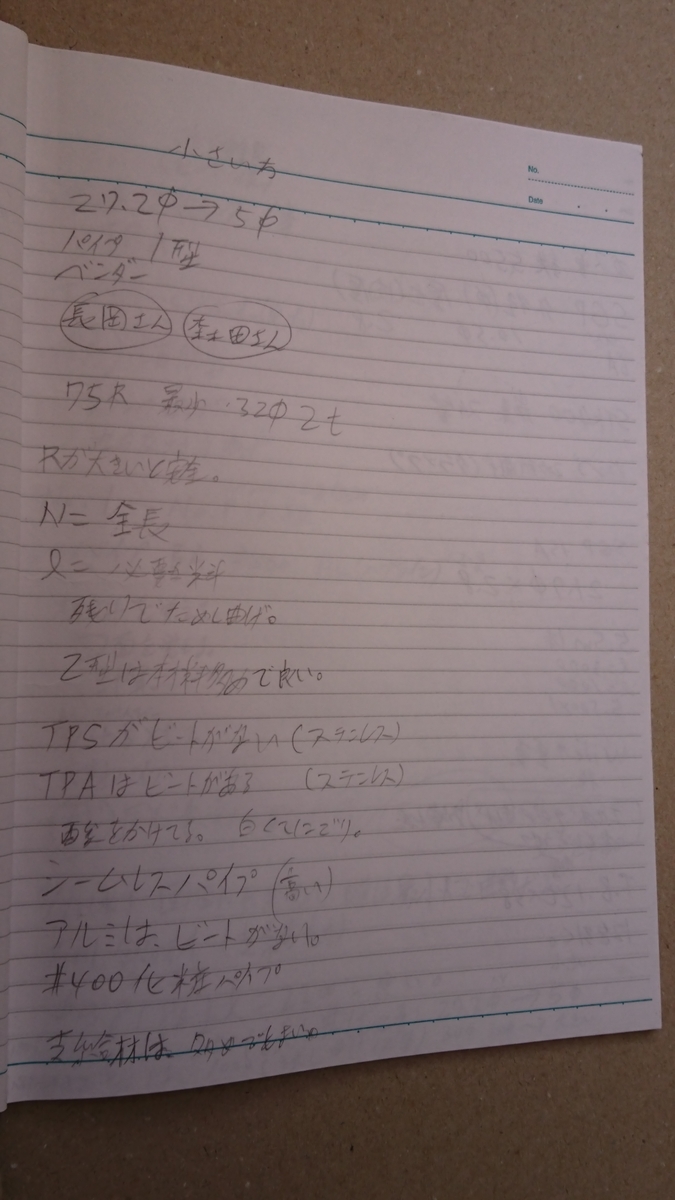 小さい方
No.
Date
27.2φ→5φ
パイプ 1型
ベンダー
長岡さん 森田さん
75R 最小 32φ 2t
Rが大きいと完全。
N= 全長
l= 必要
残りでため曲げ。
Z型は材料多めで良い。
TPSがビートがない(ステンレス)
TPAはビートがある (ステンレス)
酸をかけてる。白くにごり。
シームレスパイプ(高い)
アルミは、ビートがない。
#400化粧パイプ
支給材は、